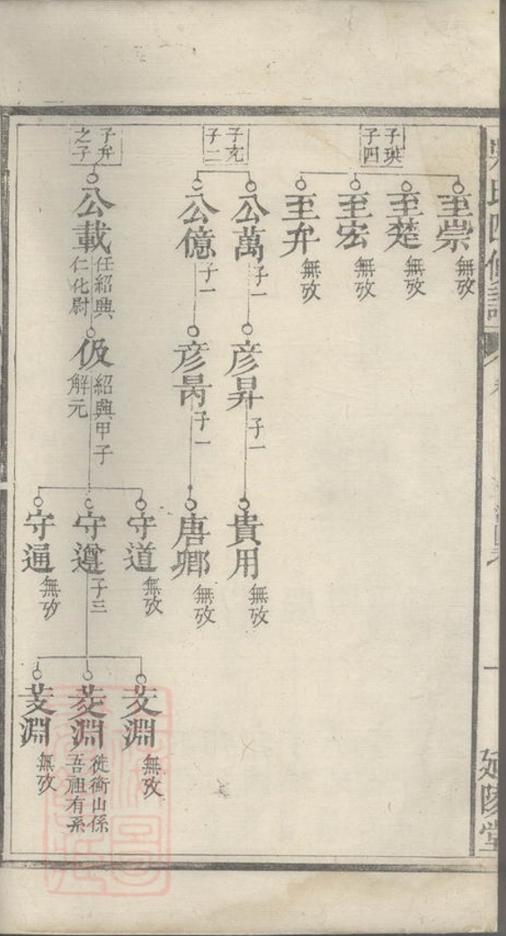 子琪
子四
至崇
無攷
至楚
無攷
至宏
無攷
至弁
無攷
子充
子二
公萬
子一
彦昇
子一
貴用
無攷
公億
子一
彦昺
子一
唐卿
無攷
子弁
之子
公載
任紹興
仁化尉
伋
紹興甲子
解元
守道
無攷
守遵
子三
守通
無攷
文淵
無攷
淵
徙衡山係
吾祖有系
淵
無攷
氏四修譜
延陵堂